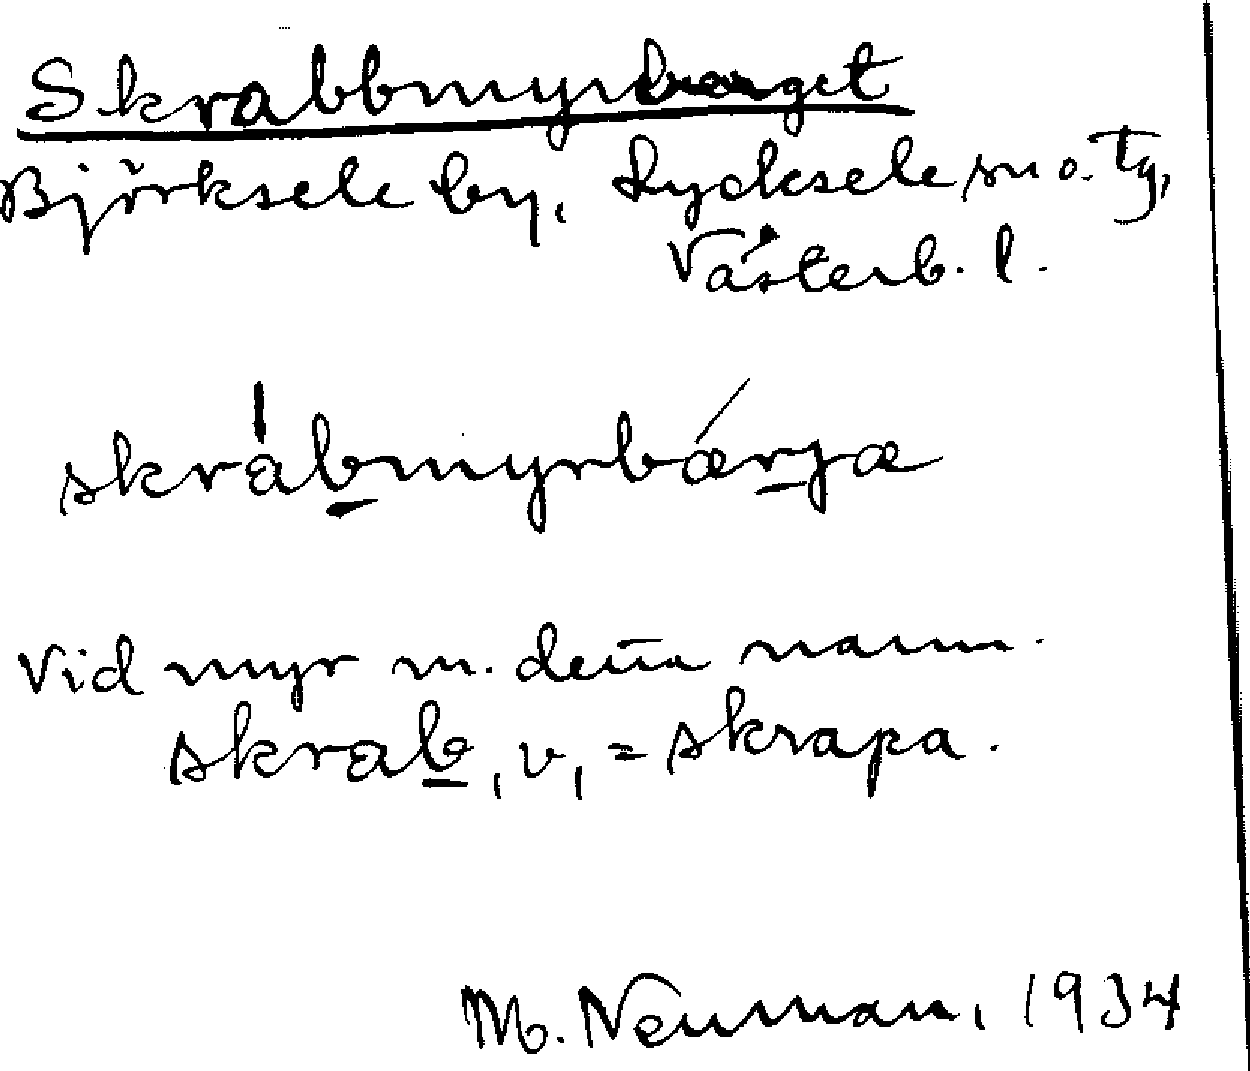 Skrabbmyrberget
Björksele by, Lycksele sn o. Tg,
Västerb. l.
skràb̲myrbǽr̲jæ
Vid myr m. deña namn.
skrab̲, v, = skrapa.
M. Neuman, 1934